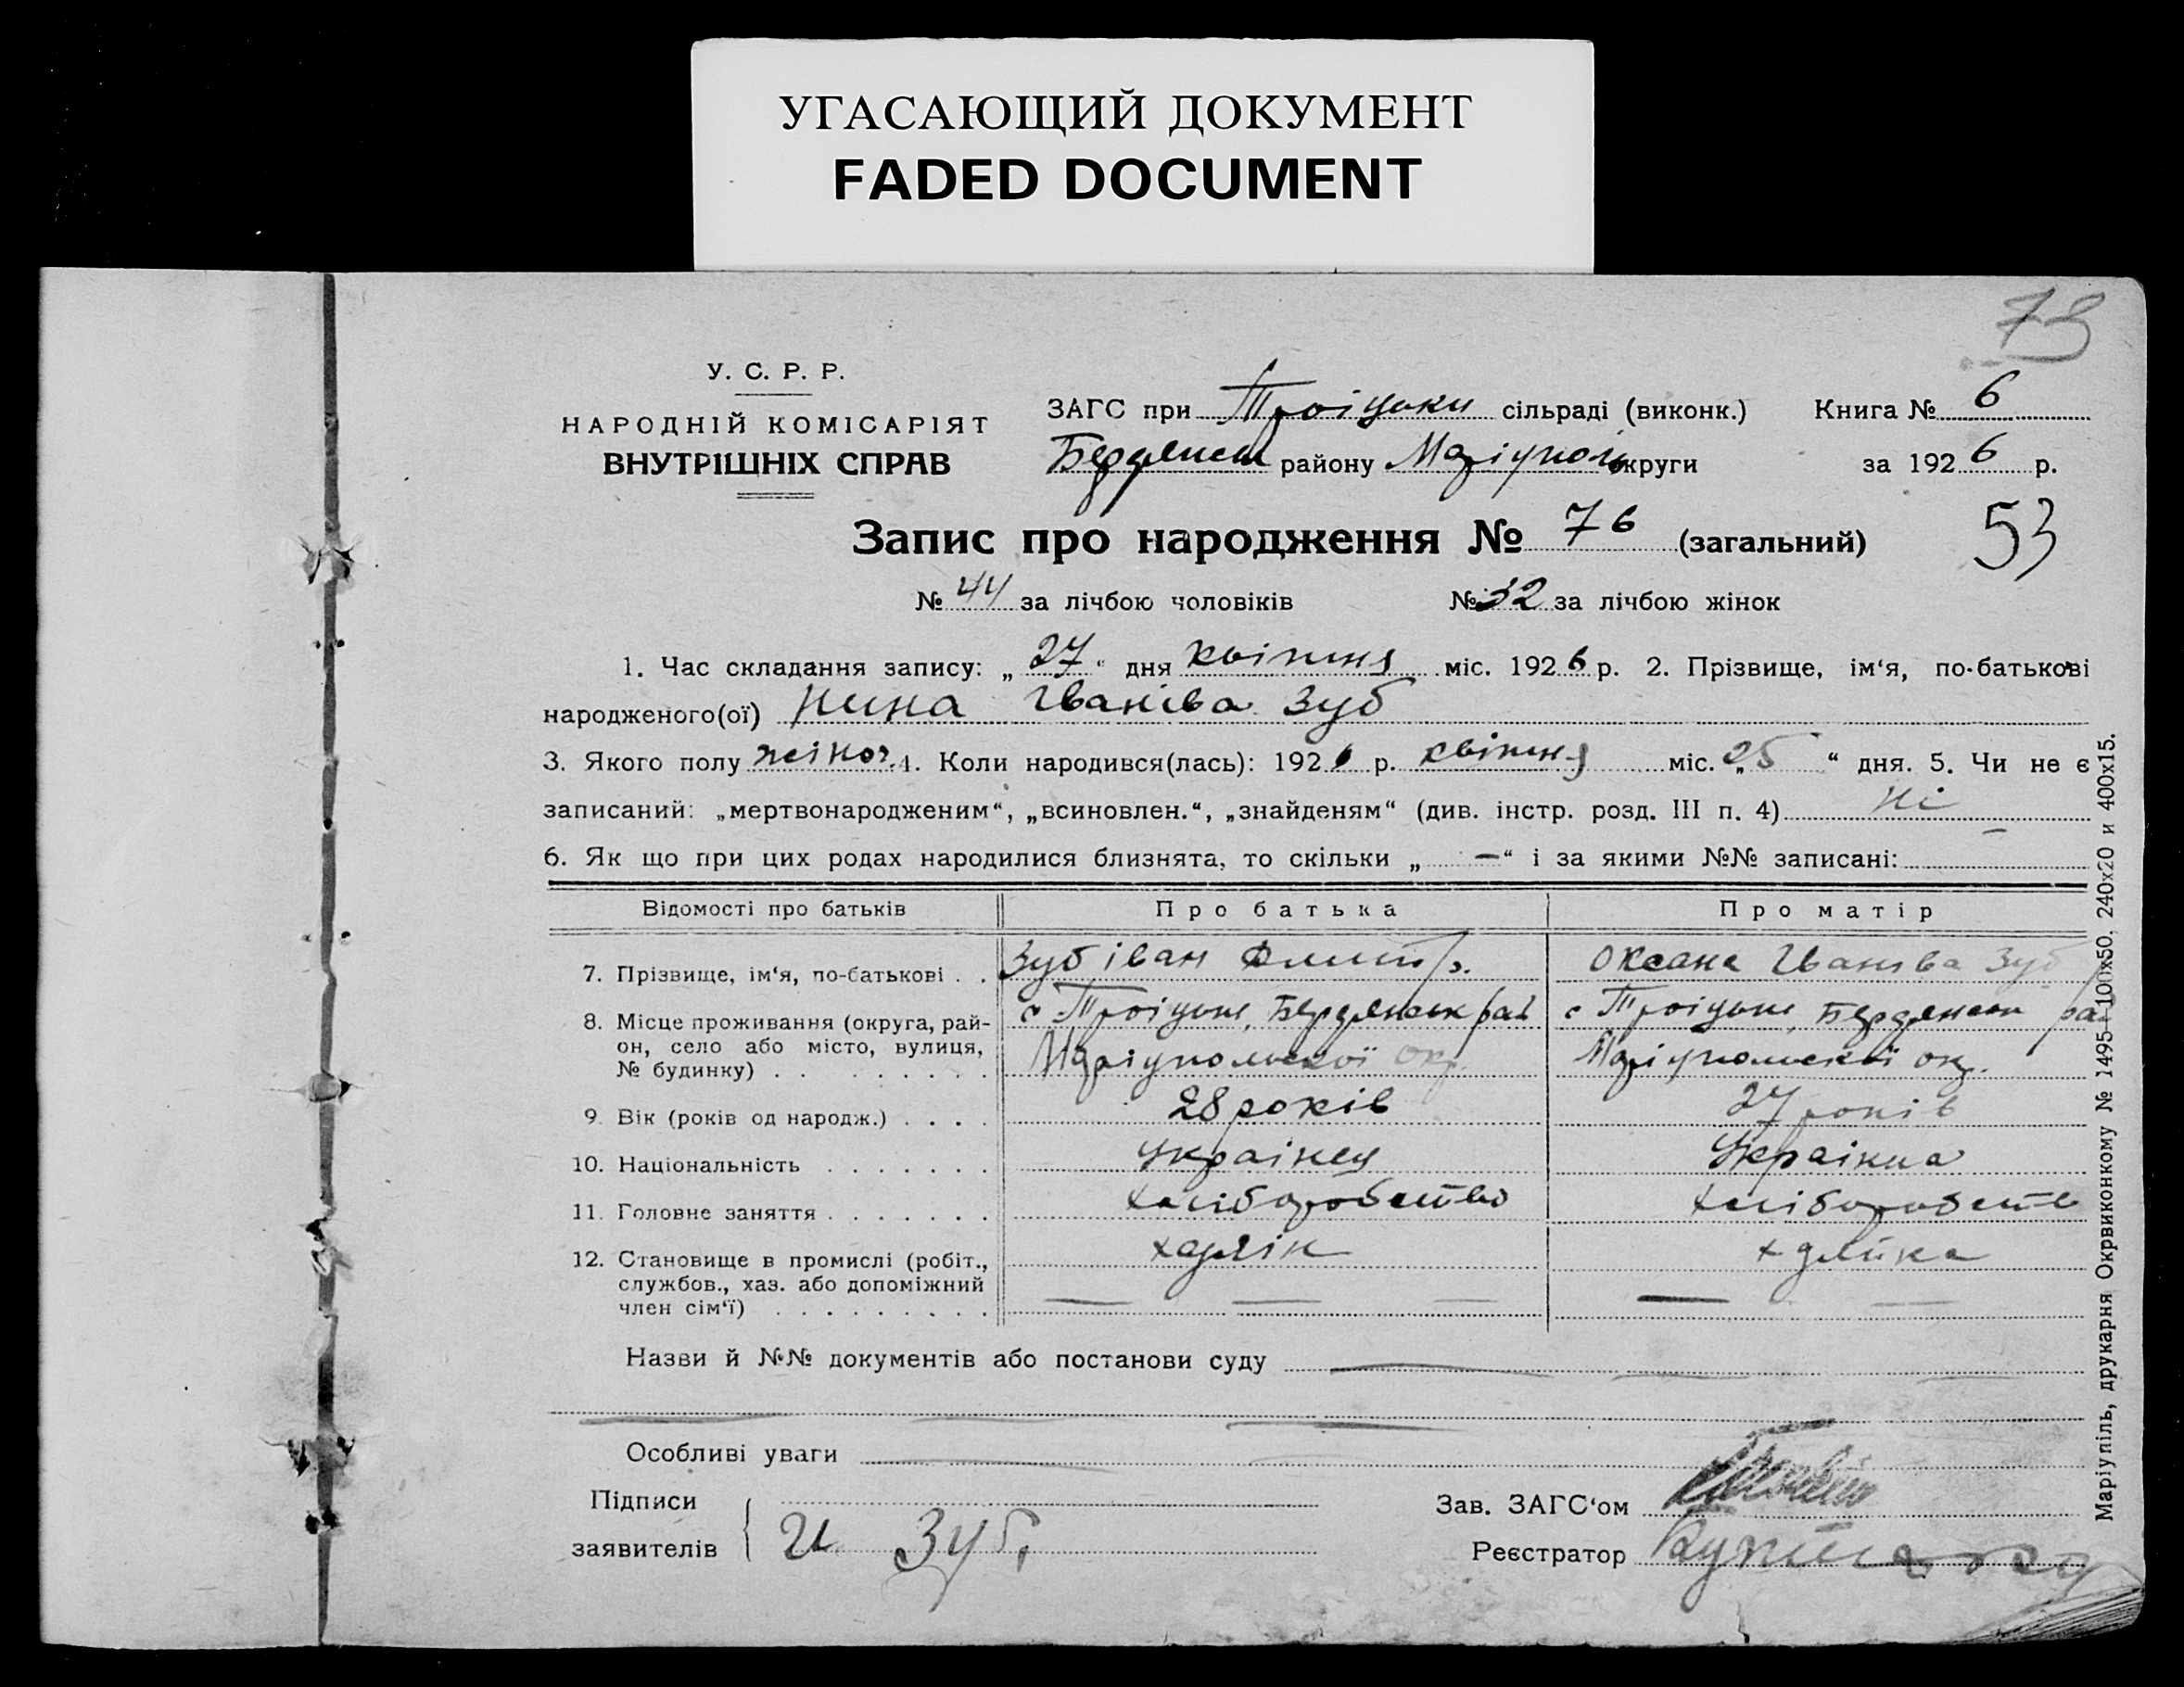 УГАСАЮЩИЙ ДОКУМЕНТ
FADED DOCUMENT
73
У. С. Р. Р.
НАРОДНІЙ КОМІСАРІЯТ
ВНУТРІШНІХ СПРАВ
ЗАГС при Троіцьки сільраді (виконк.) Книга № 6
Бердянськ району Маріуполь округи за 1926 р.
Запис про народження № 76 (загальний) 53
№ 44 за лічбою чоловіків № 32 за лічбою жінок
1. Час складання запису: „ 27 “ дня квітня міс. 1926 р. 2. Прізвище, ім‘я, по-батькові
народженого(ої) Нина Іванівa Зуб
3. Якого полу жіноч. 4. Коли народився(лась): 1926 р. квітня міс. „ 25 “ дня. 5. Чи не є
записаний: „мертвонародженим“, „всиновлен.“, „знайденям“ (див. інстр. розд. III п. 4) ні
6. Як що при цих родах народилися близнята, то скільки „ — “ і за якими №№ записані: —
Відомості про батьків Про батька Про матір
7. Прізвище, ім‘я, по-батькові . . Зуб іван Дмитр. Оксана Іванівa Зуб
8. Місце проживання (округа, рай-
он, село або місто, вулиця,
№ будинку) . . . . . . . . .
с Троіцьке, Бердянськ рай с Троіцьке, Бердянськ рай
Маріупольскої окр. Маріупольскої окр.
9. Вік (років од народж.) . . . . 28 років 27 років
10. Національність . . . . . . . украінец Украінка
11. Головне заняття . . . . . . . хліборобство хліборобств
12. Становище в промислі (робіт.,
службов., хаз. або допоміжний
член сім‘ї) . . . . . . . . .
Назви й №№ документів або постанови суду
Особливі уваги
Підписи
заявителів И Зуб.
Зав. ЗАГС‘ом
Реєстратор
Маріупіль, друкарня Окрвиконкому № 1495—100х50. 240х20 и 400х15.